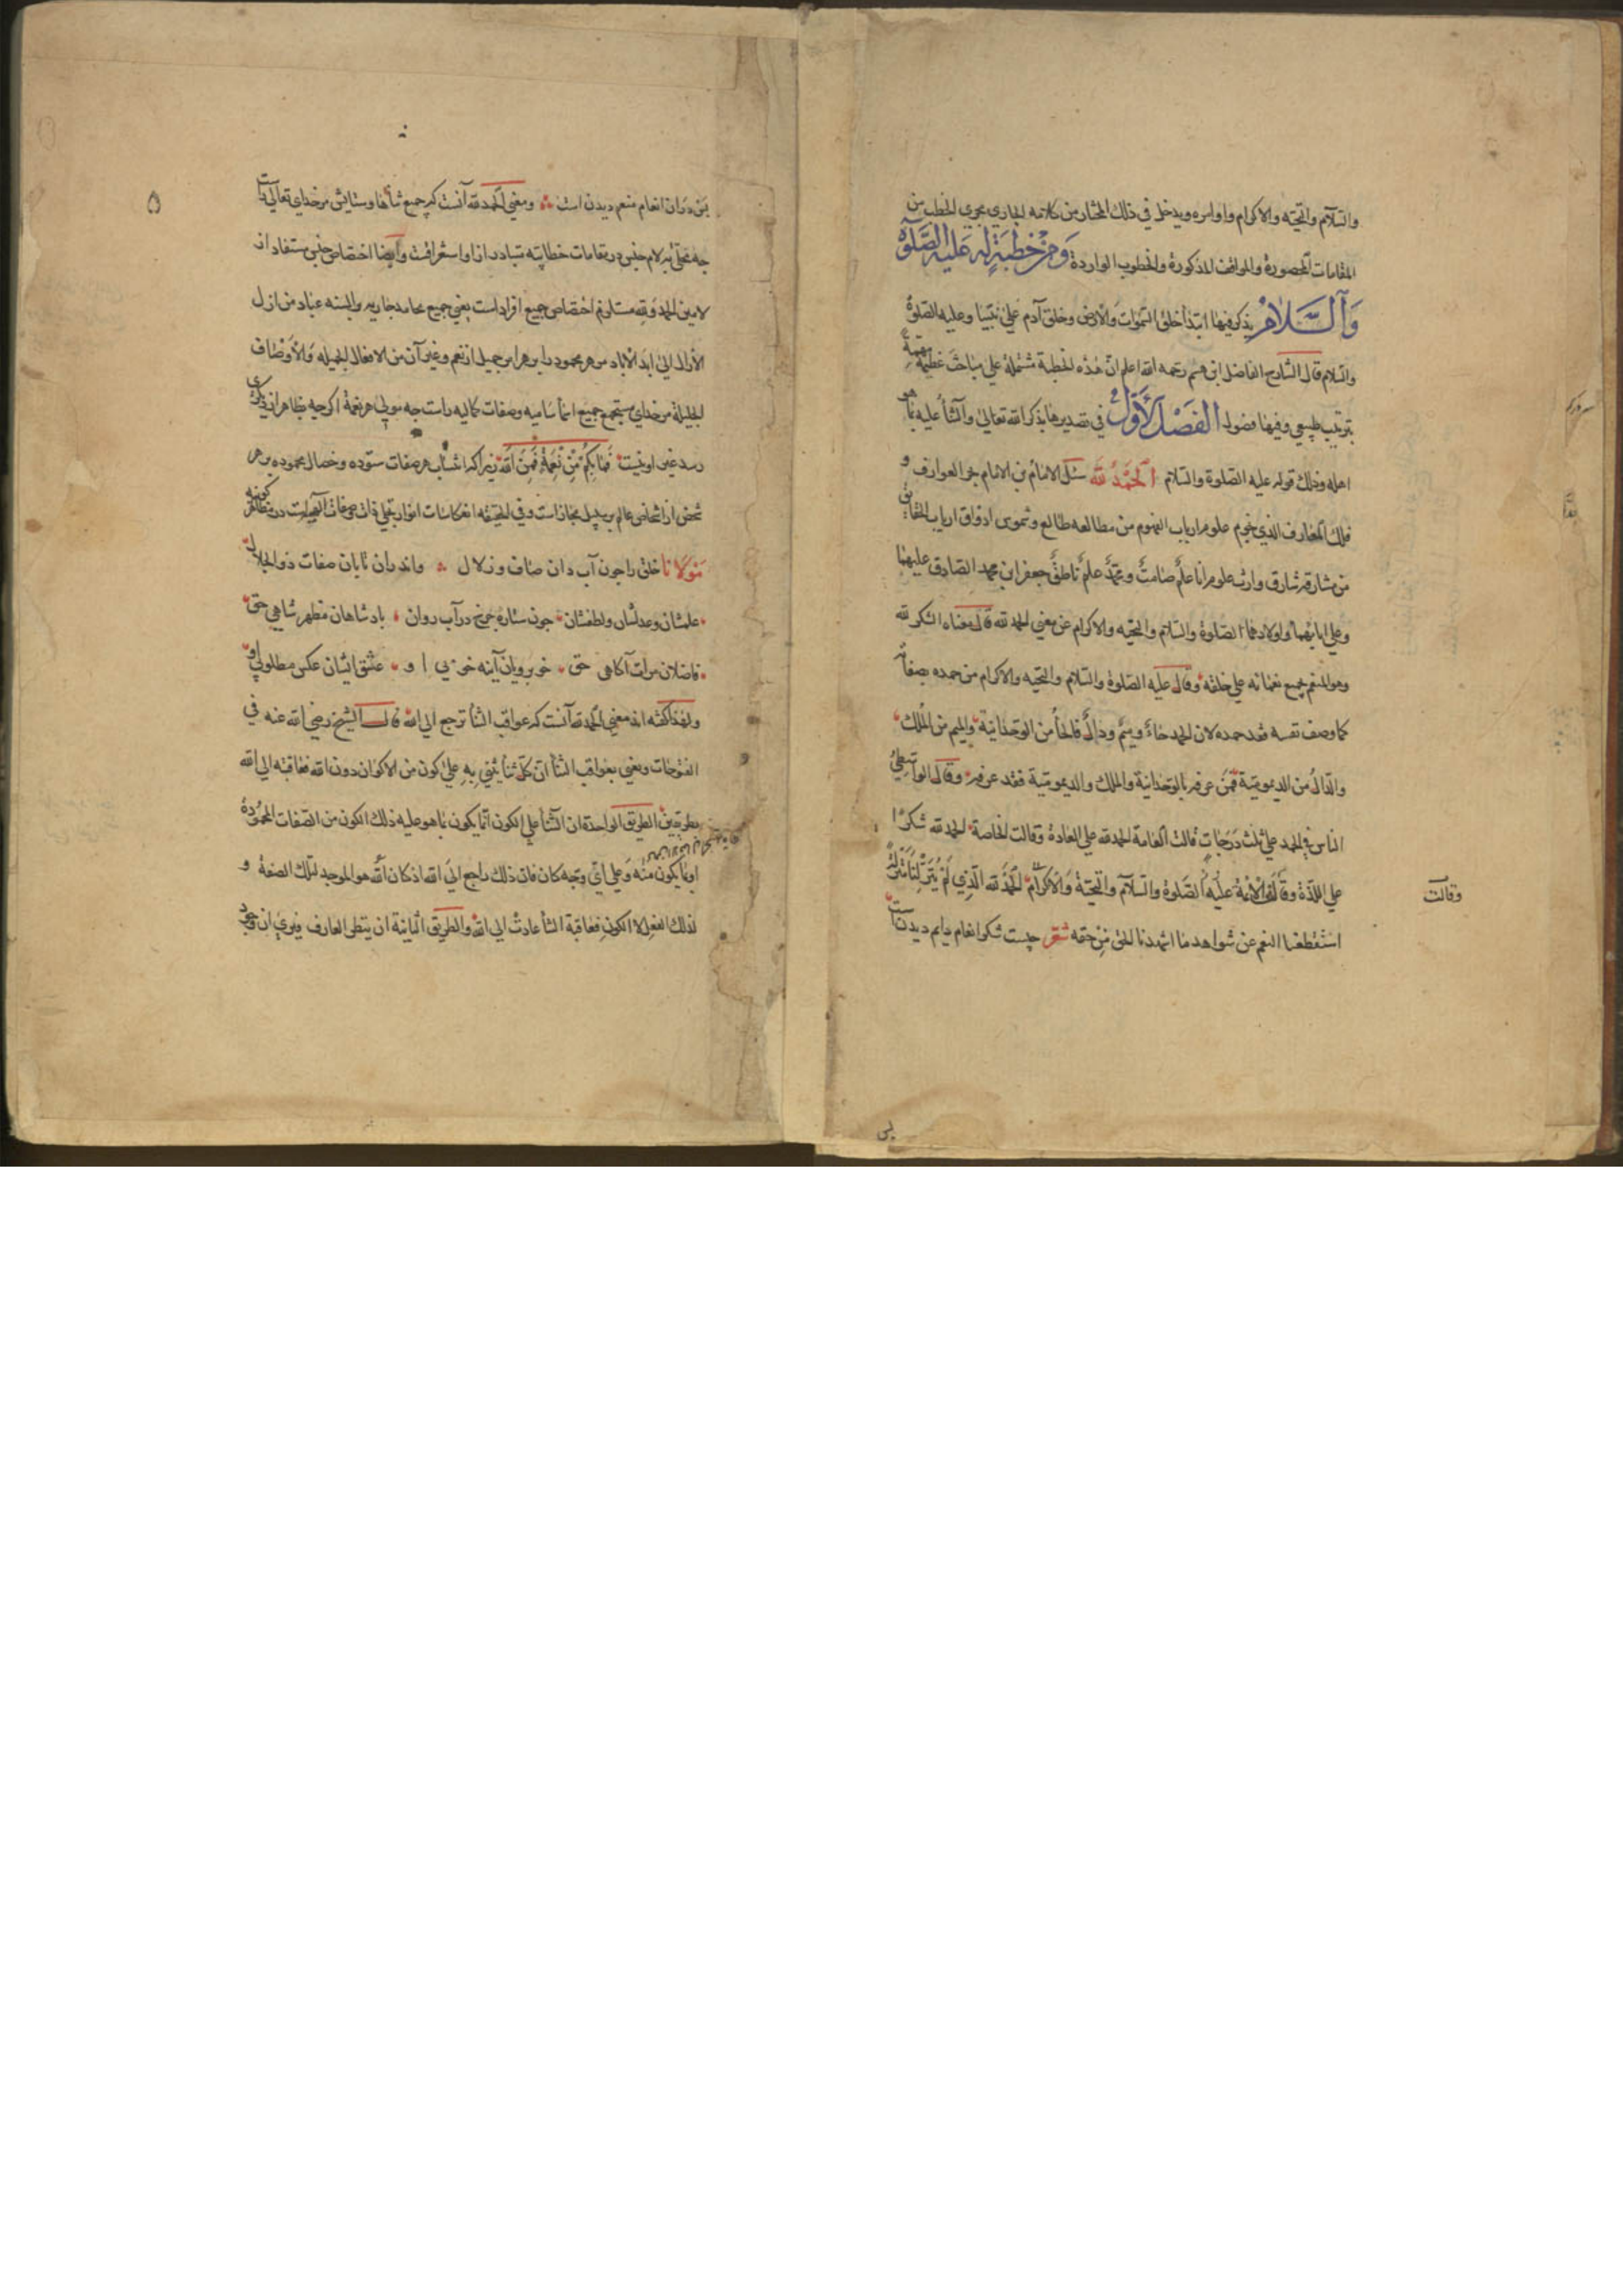 والسلام والتحیه والاکرام واوامره ویدخل فی ذلک المختار من کلامه الجاری مجری الخطب من
المقامات المحصورة والمواقف المذکورة والخطوب الواردة وَمِنْ خُطْبَةٍ لَهُ عَلَیهِ الصَّلٰوةُ
وَالسَّلَامُ یذکر فیها ابتدأ خلق السموات والارض وخلق آدم علی نبینا وعلیه الصلوة
والسلام قال الشارح الفاضل ابن میثم رحمه الله اعلم انّ هذه الخطبة مشتملة علی مباحث عظیمة مهمة
بترتیب طبیعی وفیها فصول الفَصْلُ الْأَوَّلُ فی تصدیرها بذکر الله تعالی والثنأ علیه بما هو
اهله وذلک قوله علیه الصلوة والسلام اَلْحَمْدُ لِلّٰه سئل الامام بن الامام بحر العوارف و
فلک المعارف الذی نجوم علوم ارباب الفهوم من مطالعه طالع وشموس اذواق ارباب الحقایق
من مشارقه شارق وارث علوم انا علم صامت ومحمد علم ناطق جعفر ابن محمد الصادق علیهما
وعلی ابائهما واولادهما الصلوة والسلام والتحیه والاکرام عن معنی الحمد لله قال معناه الشکر لله
وهو المنعم بجمیع نعمائه علی خلقه وقال علیه الصلوة والسلام والتحیه والاکرام من حمده بصفاته
کما وصف نفسه فقد حمده لان الحمد حاء ومیم ودال فالحأ من الوحدانیة والمیم من الملک
والدال من الدیمومیة فمن عرفه بالوحدانیة والملک والدیمومیة فقد عرفه وقال الواسطی
الناس فی الحمد علی ثلث درجات قالت العامة الحمد لله علی العادة وقالت الخاصة الحمد لله شکرا
علی اللذة وقالت الائمة علیهم الصلوة والسلام والتحیة والاکرام الحمد لله الذی لم ینزلنا منزلة
استقطعنا النعم عن شواهد ما اشهدنا الحق من حقه شعر چیست شکر انعام دایم دیدنست
وقالت
پس
پس در ان انعام منعم دیدن است ومعنی الحمد لله آنست که جمیع ثناها وستایش مر خدای تعالی راست
چه تحلّی بلام جنس در مقامات خطابیه متبادر ازاو استغراقست وأیضا اختصاص جنس مستفاد از
لامین الحمد ولله مستلزم اختصاص جمیع افراد است یعنی جمیع محامد جاریه بر السنه عباد من ازل
الازال الی ابد الاباد من هر محمود را بر هر امر جمیل از نعم وغیر آن من الافعال الجمیله والأوصاف
الجلیلة مر خدای مستجمع جمیع اسما سامیه وصفات کمالیه راست چه مولی هر نعمة اگرچه بظاهر از دیگری
رسد غیر او نیست فَمَا بِکُمْ مِنْ نِعْمَةٍ فَمِنَ اللّٰه زیرا که انتساب هر صفات ستوده وخصال محموده بر هر
شخص از اشخاص عالم بر سبیل مجاز است وفی الحقیقه انعکاسات انوار تجلی ذات وصفات الهیست در مظاهر کونیه
مَوْلَانا خلق را چون آب دان صاف وزلال واندران تابان صفات ذوالجلال
علمشان وعدلشان ولطفشان چون ستاره چرخ در آب روان پادشاهان مظهر شاهی حق
فاضلان مرات آگاهی حق خوبرویان آینه خوبی او عشق ایشان عکس مطلوبی او
ولهذا گفته اند معنی الحمد لله آنست که عواقب الثنأ ترجع الی الله قال الشیخ رضی الله عنه فی
الفتوحات ویعنی بعواقب الثنأ انّ کل ثنأ یثنی بهِ علی کون من الاکوان دون الله فعاقبته الی الله
بطریقین الطریق الواحدة ان الثنأ علی الکون انّما یکون بما هو علیه ذلک الکون من الصفات المحمودة
اوبما یکون منه وعلی أیّ وجه کان فان ذلک راجع الی الله اذ کان الله هو الموجد لتلک الصفة و
لذلک الفعل لا الکون فعاقبة الثنأ عادت الی الله والطریق الثانیة ان ینظر العارف فیری ان وجود